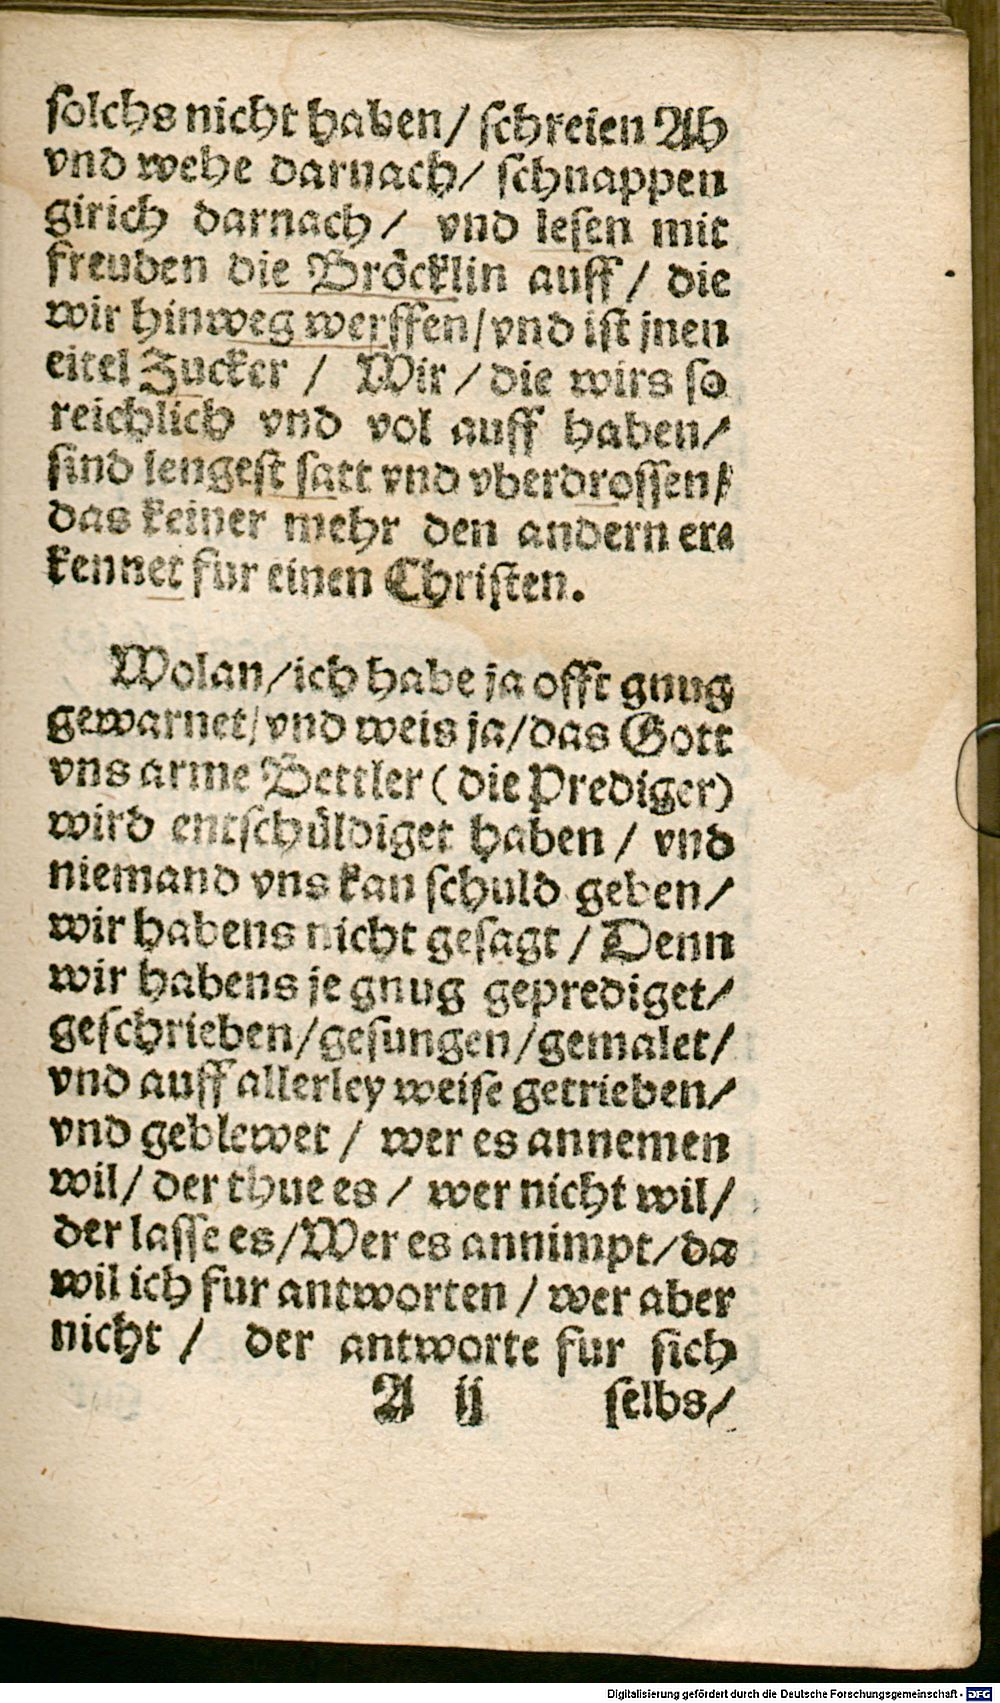 solchs nicht haben / schreien Ah
vnd wehe darnach / schnappen
girich darnach / vnd lesen mit
freuden die Bröcklin auff / die
wir hinweg werffen / vnd ist jnen
eitel Zucker / Wir / die wirs so
reichlich vnd vol auff haben /
sind lengest satt vnd vberdrossen /
das keiner mehr den andern er⸗
kennet fur einen Christen.
Wolan / ich habe ja offt gnug
gewarnet / vnd weis ja / das Gott
vns arme Bettler ( die Prediger)
wird entschüldiget haben / vnd
niemand vns kan schuld geben /
wir habens nicht gesagt / Denn
wir habens je gnug geprediget /
geschrieben / gesungen / gemalet /
vnd auff allerley weise getrieben /
vnd geblewet / wer es annemen
wil / der thue es / wer nicht wil /
der lasse es / Wer es annimpt / da
wil ich fur antworten / wer aber
nicht / der antworte fur sich
A ij selbs /
Digitalisierung gefördert durch die Deutsche Forschungsgemeinschaft - DFG